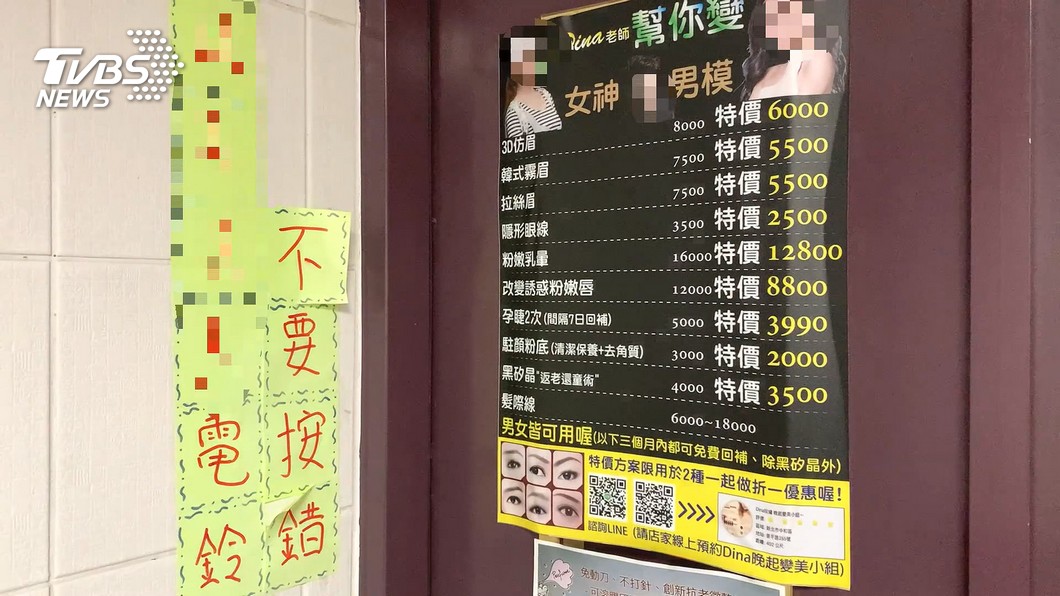 TVBS
NEWS
不要按錯
電鈴
Dina老師 幫你變
女神 男模
3D仿眉 8000 特價 6000
韓式霧眉 7500 特價 5500
拉絲眉 7500 特價 5500
隱形眼線 3500 特價 2500
粉嫩乳暈 16000 特價 12800
改變誘惑粉嫩唇 12000 特價 8800
孕睫2次(間隔7日回補) 5000 特價 3990
駐顏粉底(清潔保養+去角質) 3000 特價 2000
黑矽晶"返老還童術" 4000 特價 3500
髮際線 6000~18000
男女皆可用喔(以下三個月內都可免費回補、除黑矽晶外)
特價方案限用於2種一起做折一優惠喔!
諮詢LINE (請店家線上預約Dina晚起變美小組)
免動刀、不打針、創新拉老